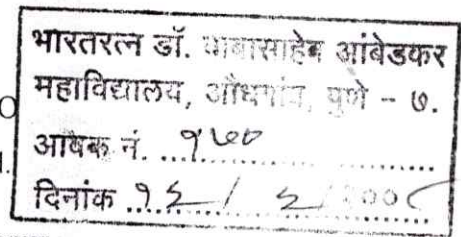 भारतरत्न डॉ. बाबासाहेब आंबेडकर
महाविद्यालय, औंधगांव, पुणे - ७.
आवक नं. ...१७०
दिनांक ..